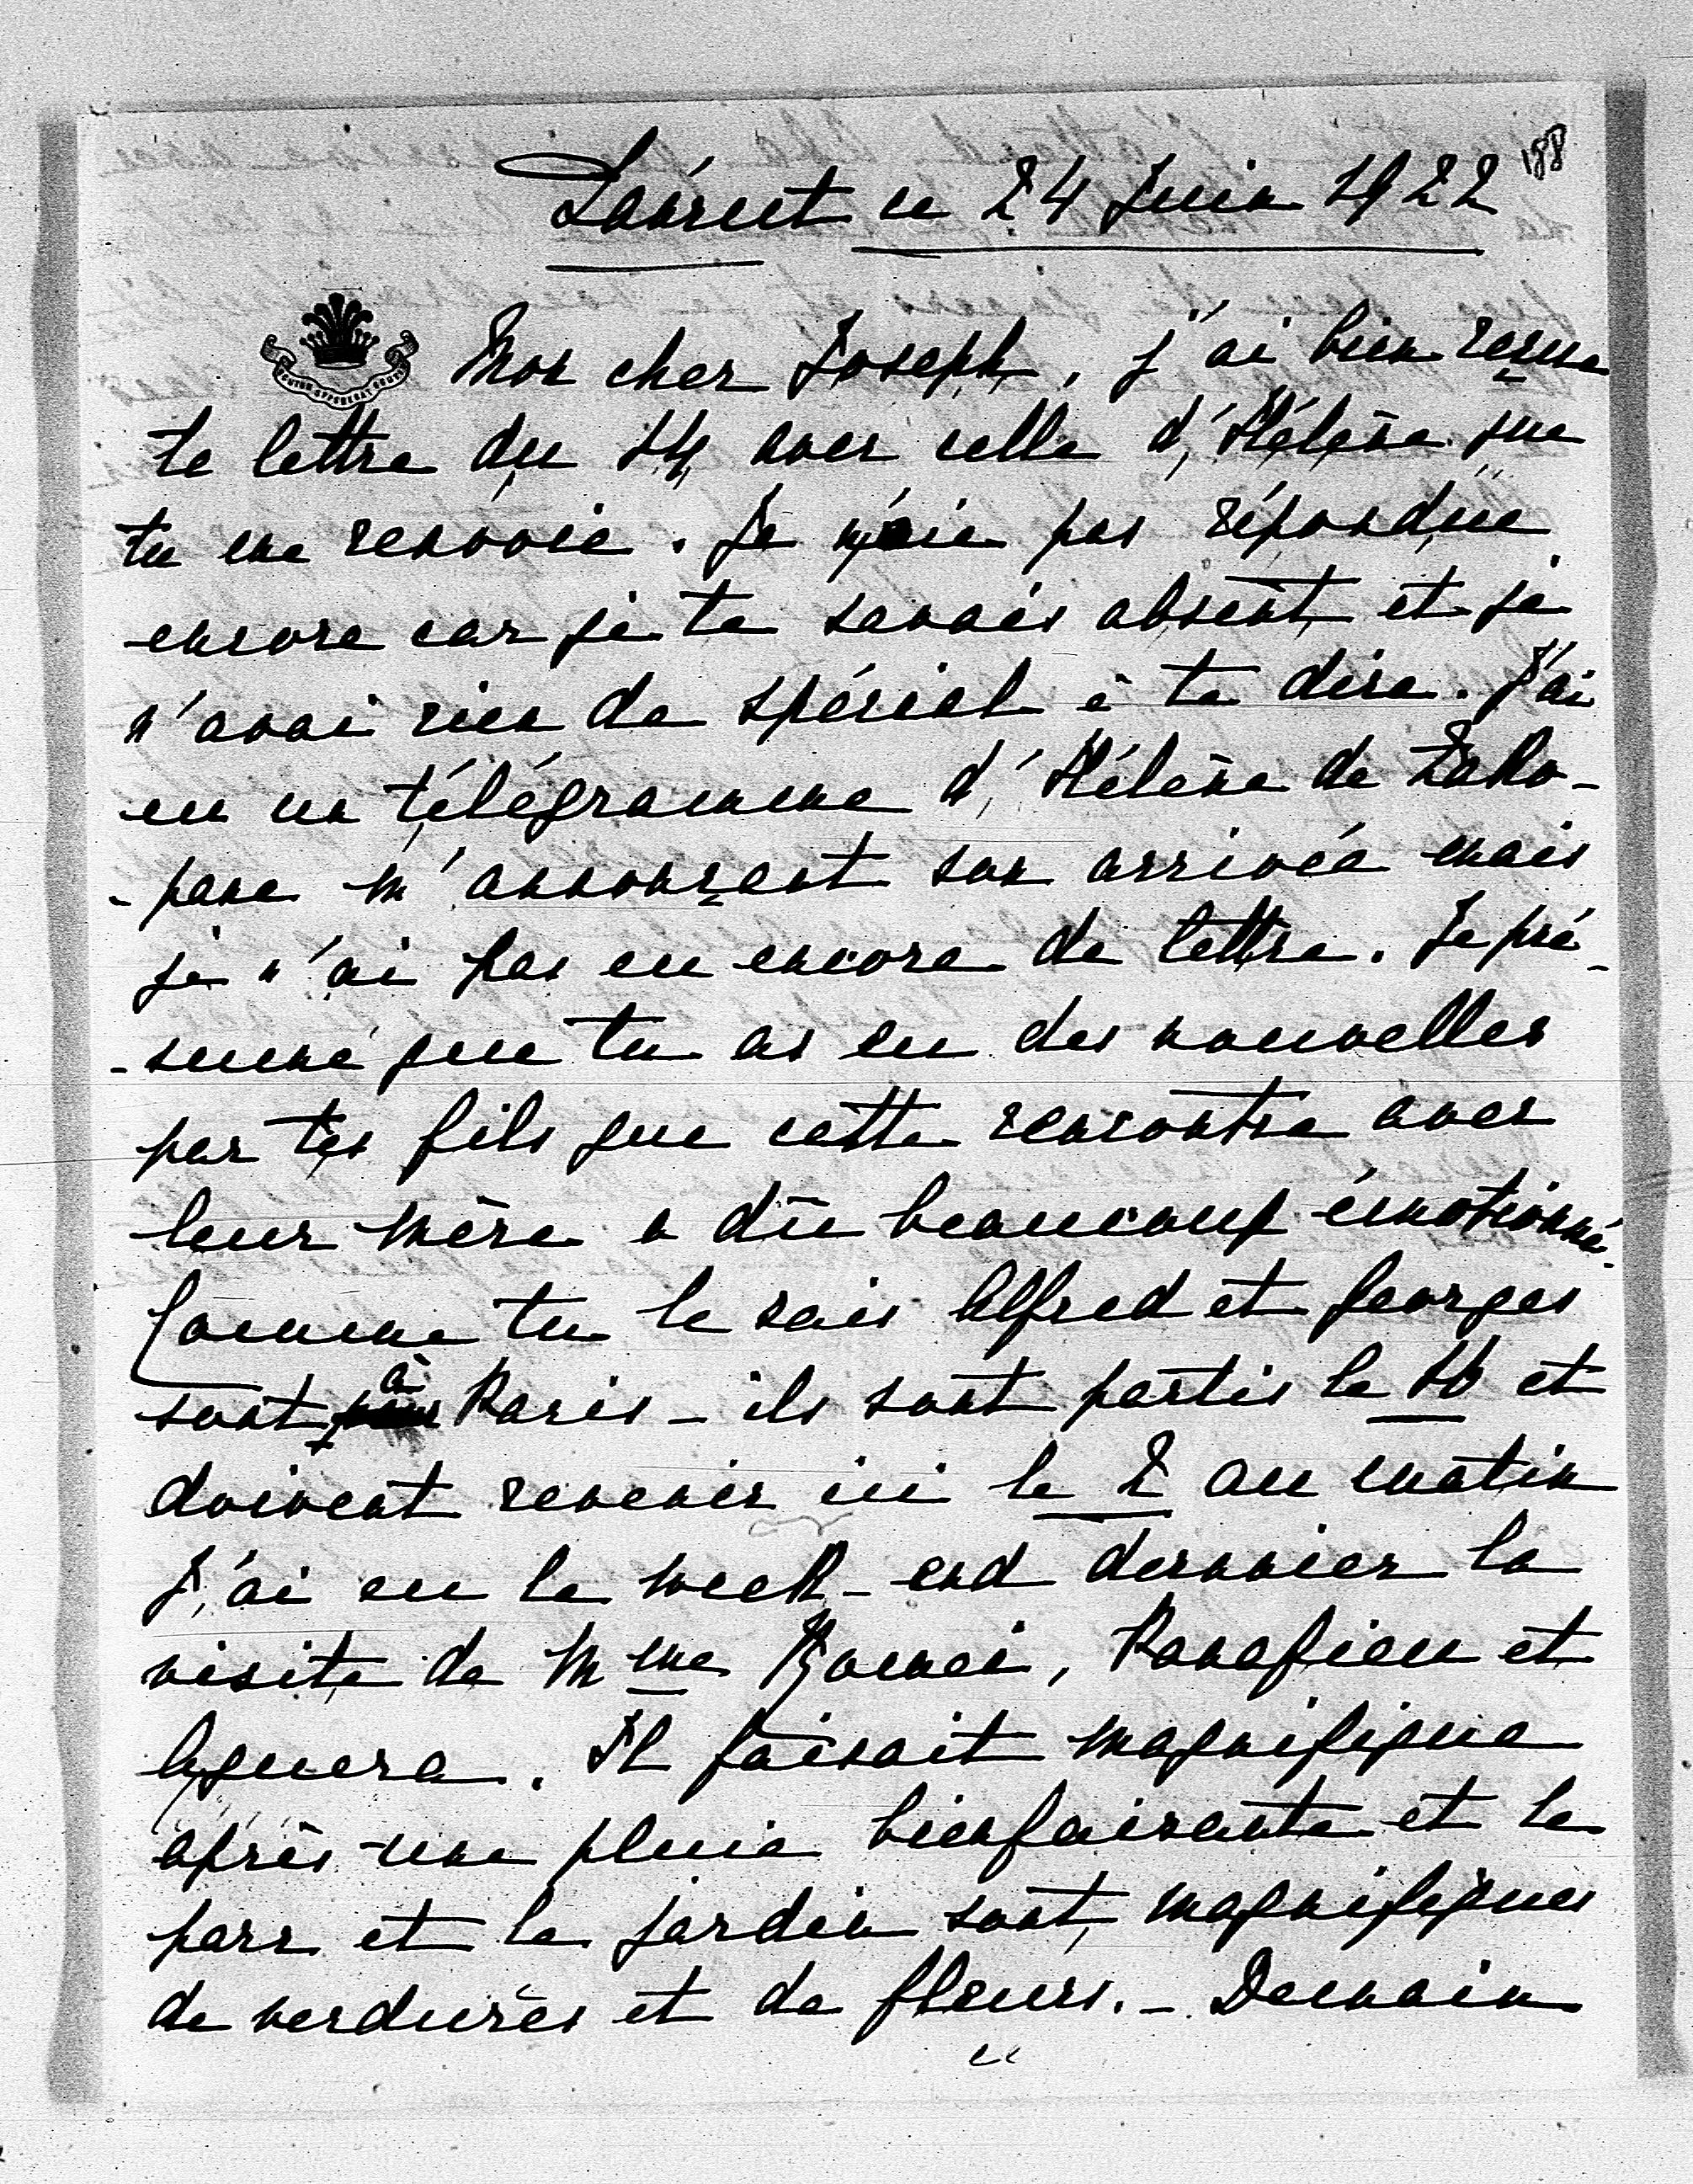 188
Łańcut ce 24 Juin 1922
Mon cher Joseph, j'ai bien reçue
ta lettre du 14 avec celle d'Hélène que
tu me renvoie. Je n'aie pas répondue
encore car je te savais absent et je
n'avai rien de spécial à te dire. J'ai
eu un télégramme d'Hélène de Zako-
-pane m'annonçant son arrivée mais
je n'ai pas eu encore de lettre. Je pré-
-sume que tu as eu des nouvelles
par tes fils que cette rencontre avec
leur mère a dû beaucoup émotionné.
Comme tu le sais Alfred et Georges
sont à Paris - ils sont partis le 16 et
doivent revenir ici le 2 au matin
J'ai eu le week-end dernier la
visite de Mme, Panafieu et
Aguera. Il faisait magnifique
après une pluie bienfaisante et le
parc et le jardin sont magnifiques
de verdures et de fleurs. - Demain